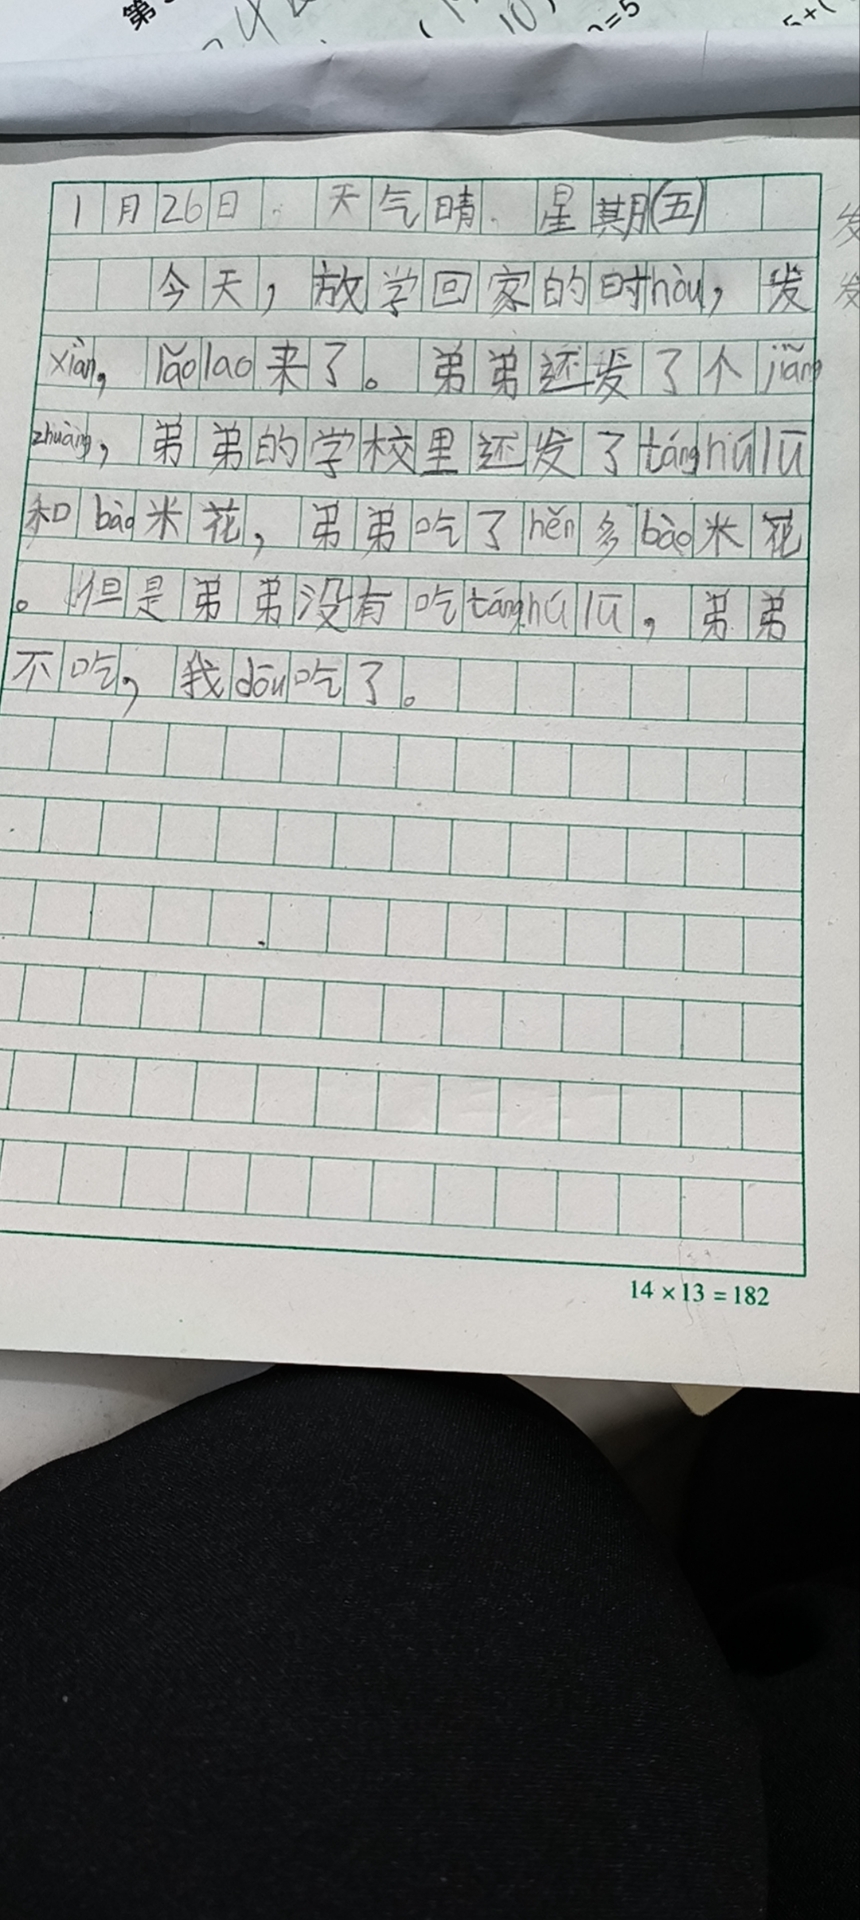 第
10)
=5
5+(
1月26日 天气晴 星期(五)
今天，放学回家的时hòu，发
xiàn，lǎolao来了。弟弟还发了个jiǎng
zhuàng，弟弟的学校里还发了tánghúlū
和bào米花，弟弟吃了hěn多bào米花
。但是弟弟没有吃tánghúlū，弟弟
不吃，我dōu吃了。
发
发
14×13=182